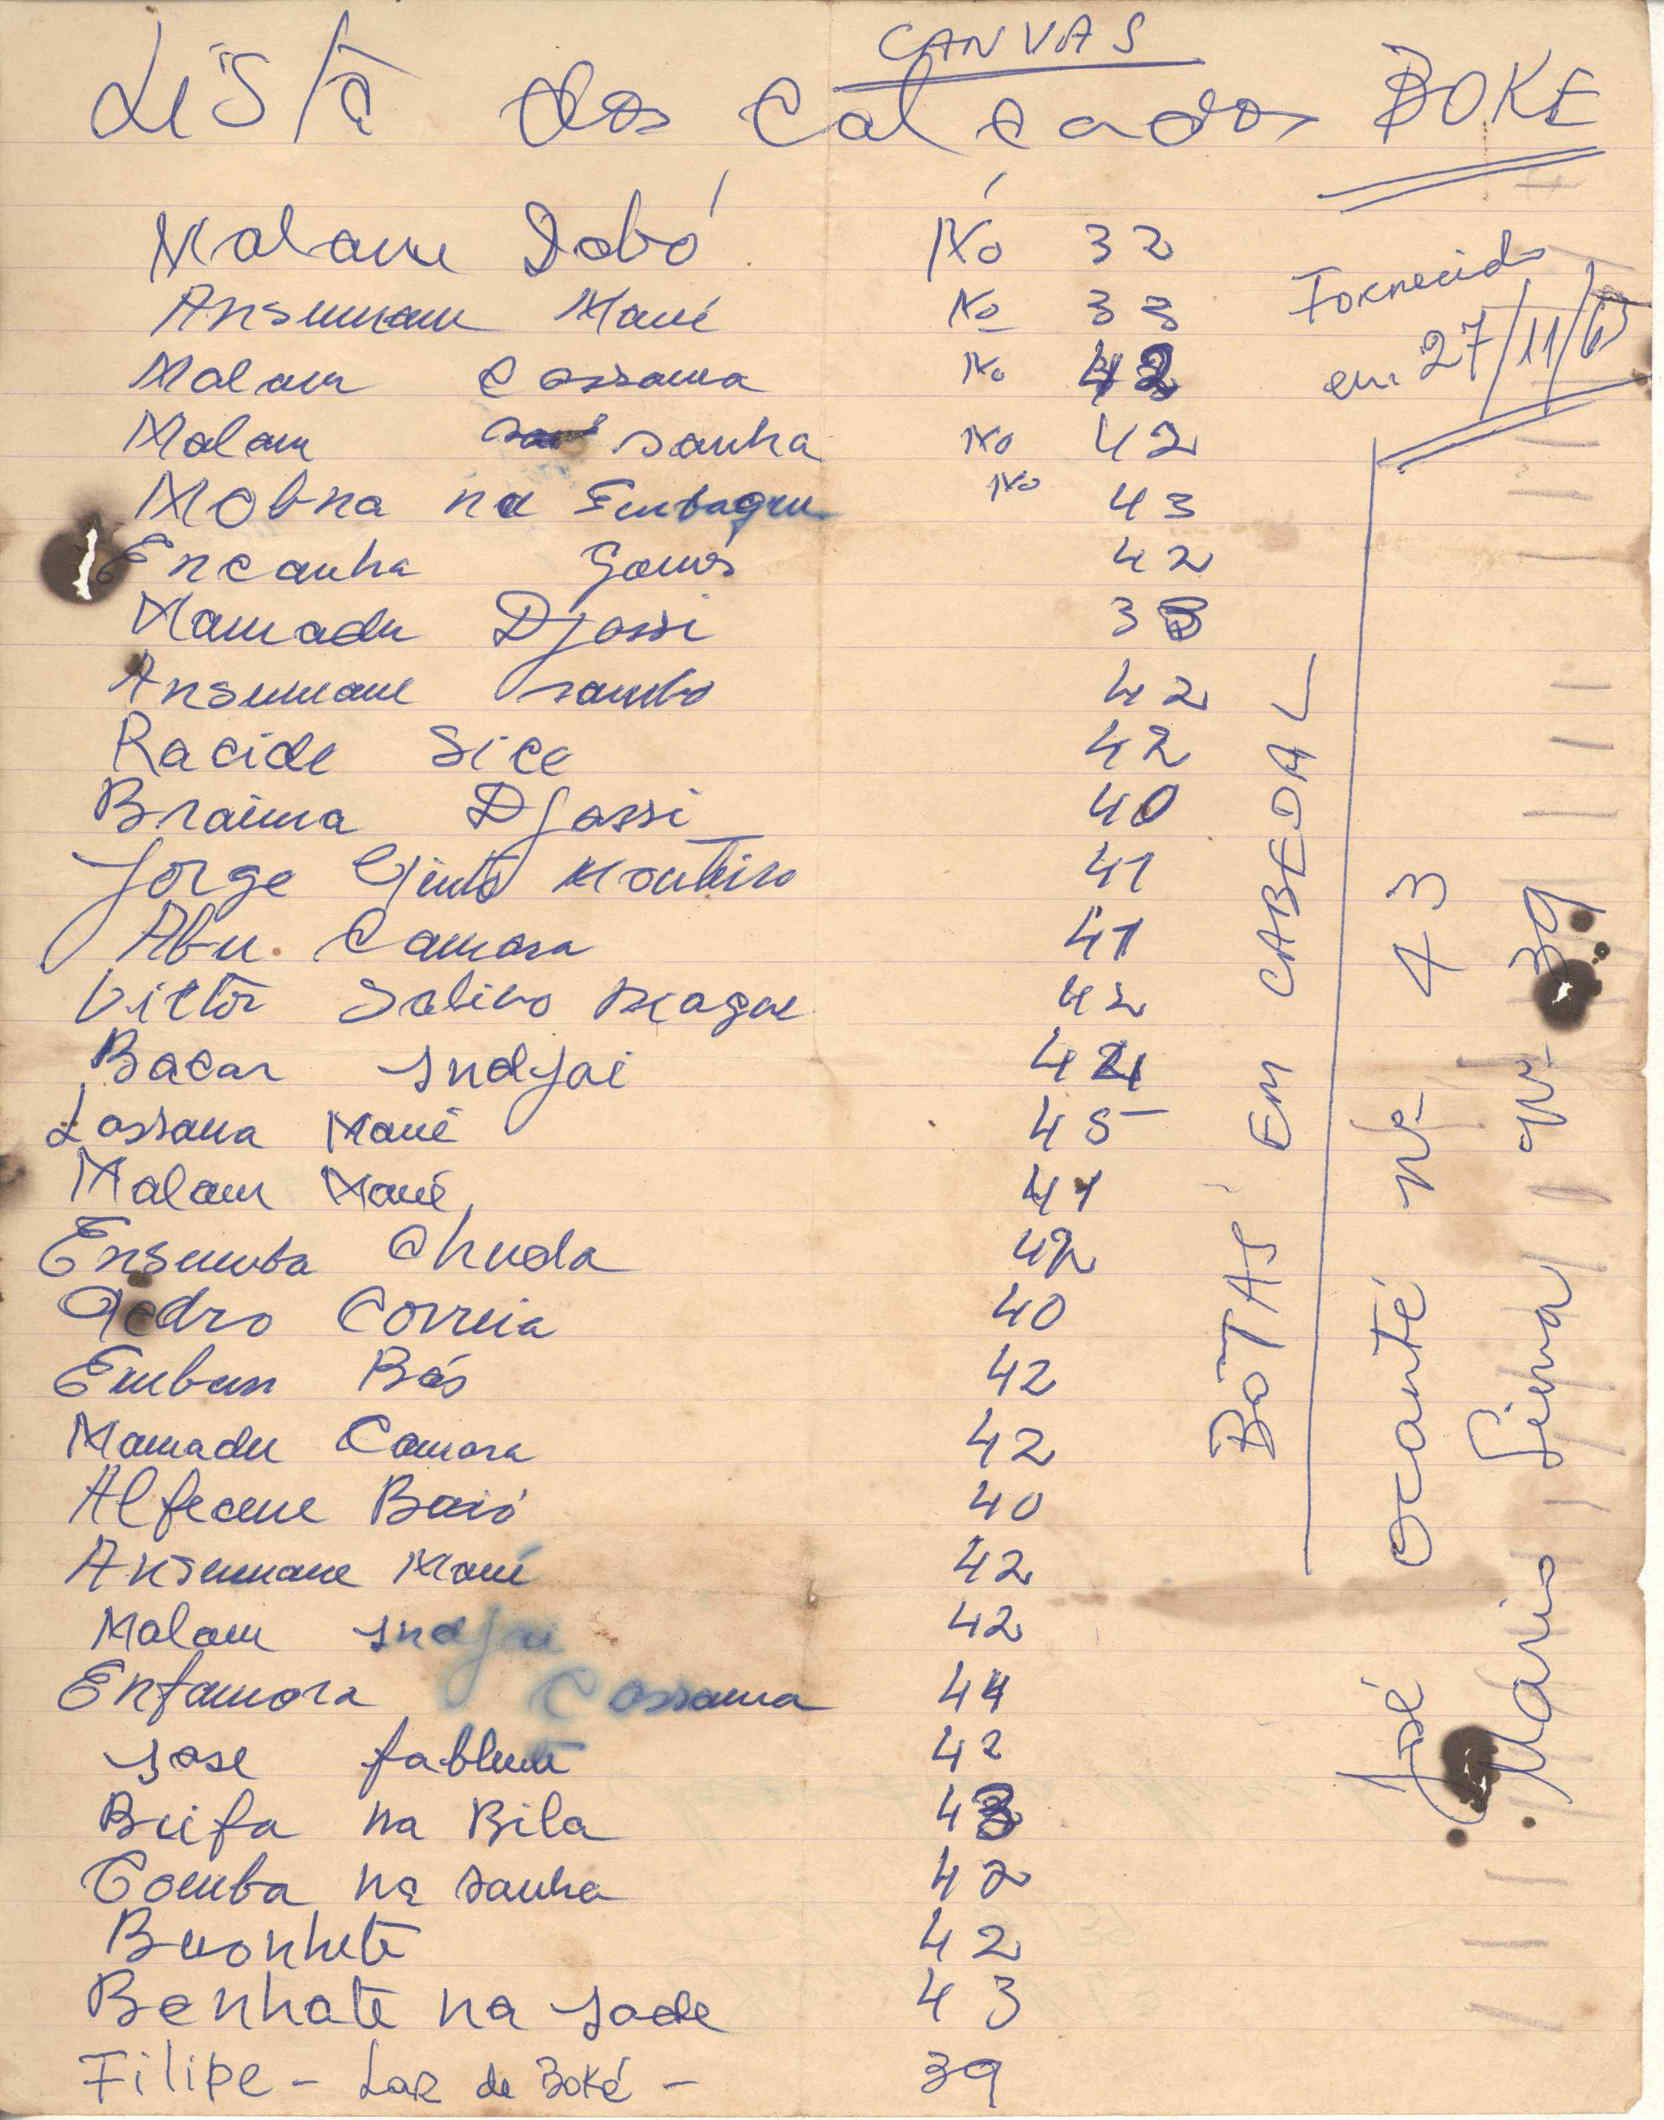 CANVAS
Lista dos calçados BOKE
Malam Dabó No 32
Ansumam Mané No 33
Malam Cassama No 42
Malam sanha No 42
Mobna na No 43
Encanha Gomis 42
Mamadu Djassi 38
Ansumane sambo 42
Racide Sice 42
Braima Djassi 40
Jorge Monteiro 41
Abu Camara 41
Victor Salivo 42
Bacar Indjai 42
Lassana Mané 45
Malam Mané 41
Ensumba Chuda 42
Pedro Correia 40
Embun Bás 42
Mamadu Camara 42
Alfecene Baió 40
Ansumane Mané 42
Malam Indjai 42
Enfamara Cassama 44
Jose 42
Biifa na Bila 43
Comba na sanha 42
Buonhete 42
Benhate na Jade 43
Filipe - Lar de Boké - 39
Fornecido
em 27/11/63
BOTAS EM CABEDAL
José Ocanté Nº 43
Mario Lima Nº 39